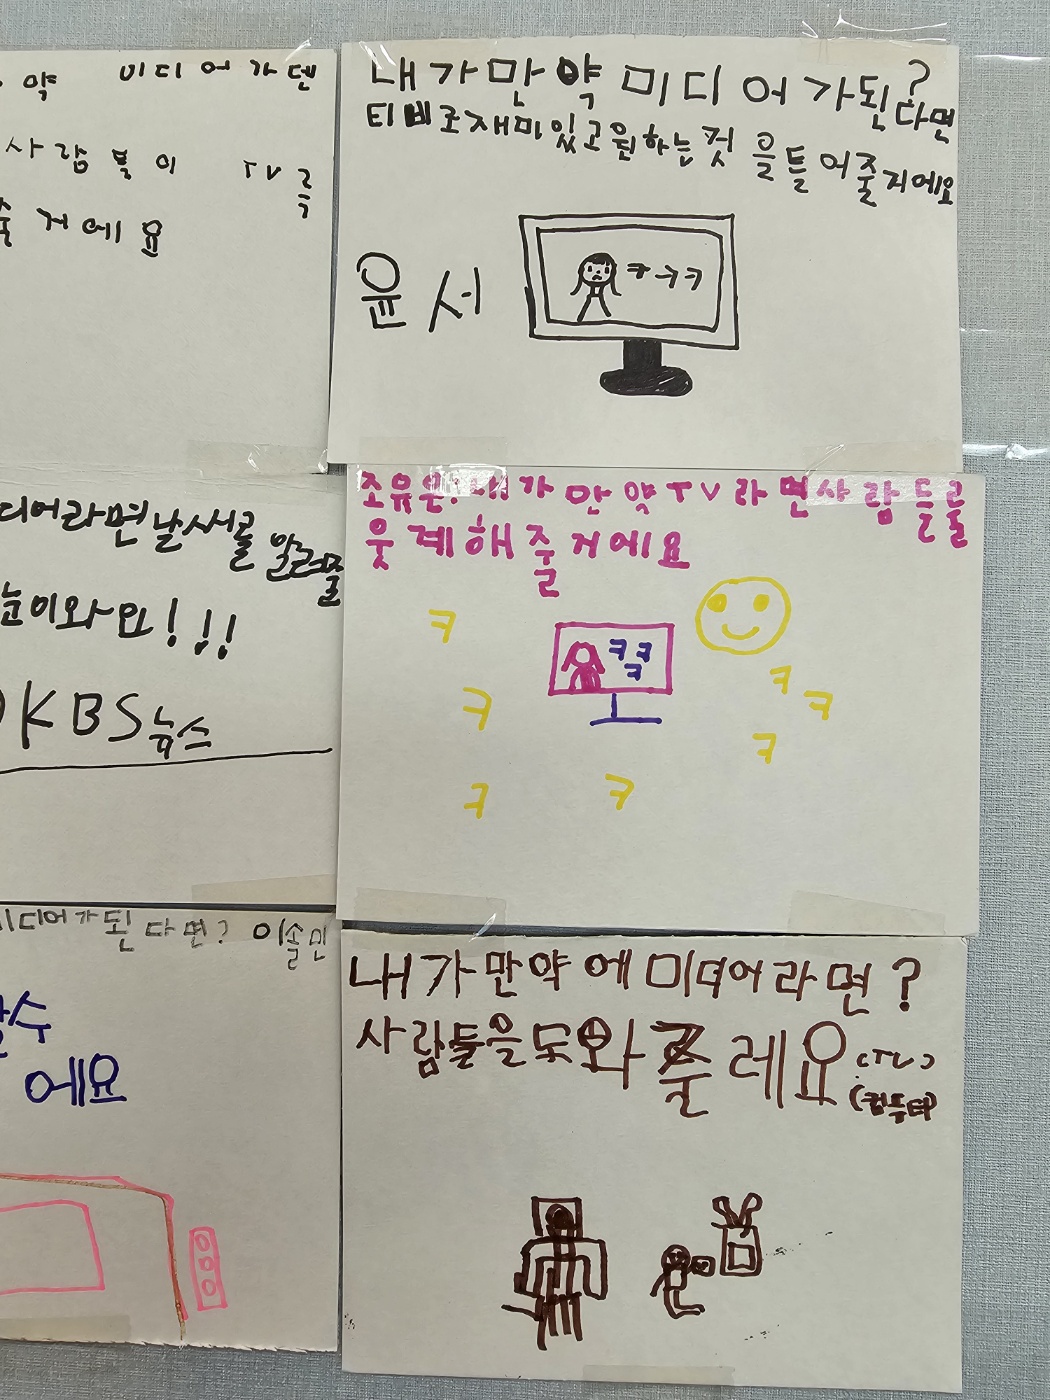 미디어가덴
사람들이 TV를
거에요
내가만약 미디어가된다면?
티비로재미있고원하는것을틀어줄거에요
윤서
ㅋㅋㅋ
디어라면날씨를 알려줄
눈이와요!!!
KBS뉴스
조유은:내가만약TV라면사람들를
웃게해줄거에요
ㅋㅋㅋ
ㅋ
ㅋ
ㅋ
ㅋ
ㅋ
ㅋ
ㅋ
미디어가된다면? 이솔민
수
에요
내가만약에미디어라면?
사람들을도와줄레요(TV)
(컴퓨터)